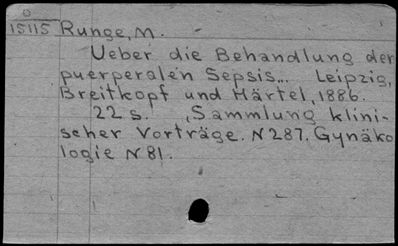 15115 Runge, M.
Ueber die Behandlung der
puerperalen Sepsis... Leipzig,
Breitkopf und Härtel, 1886.
22 s. , Sammlung klini-
scher Vorträge. N 287. Gynäko
logie N 81.